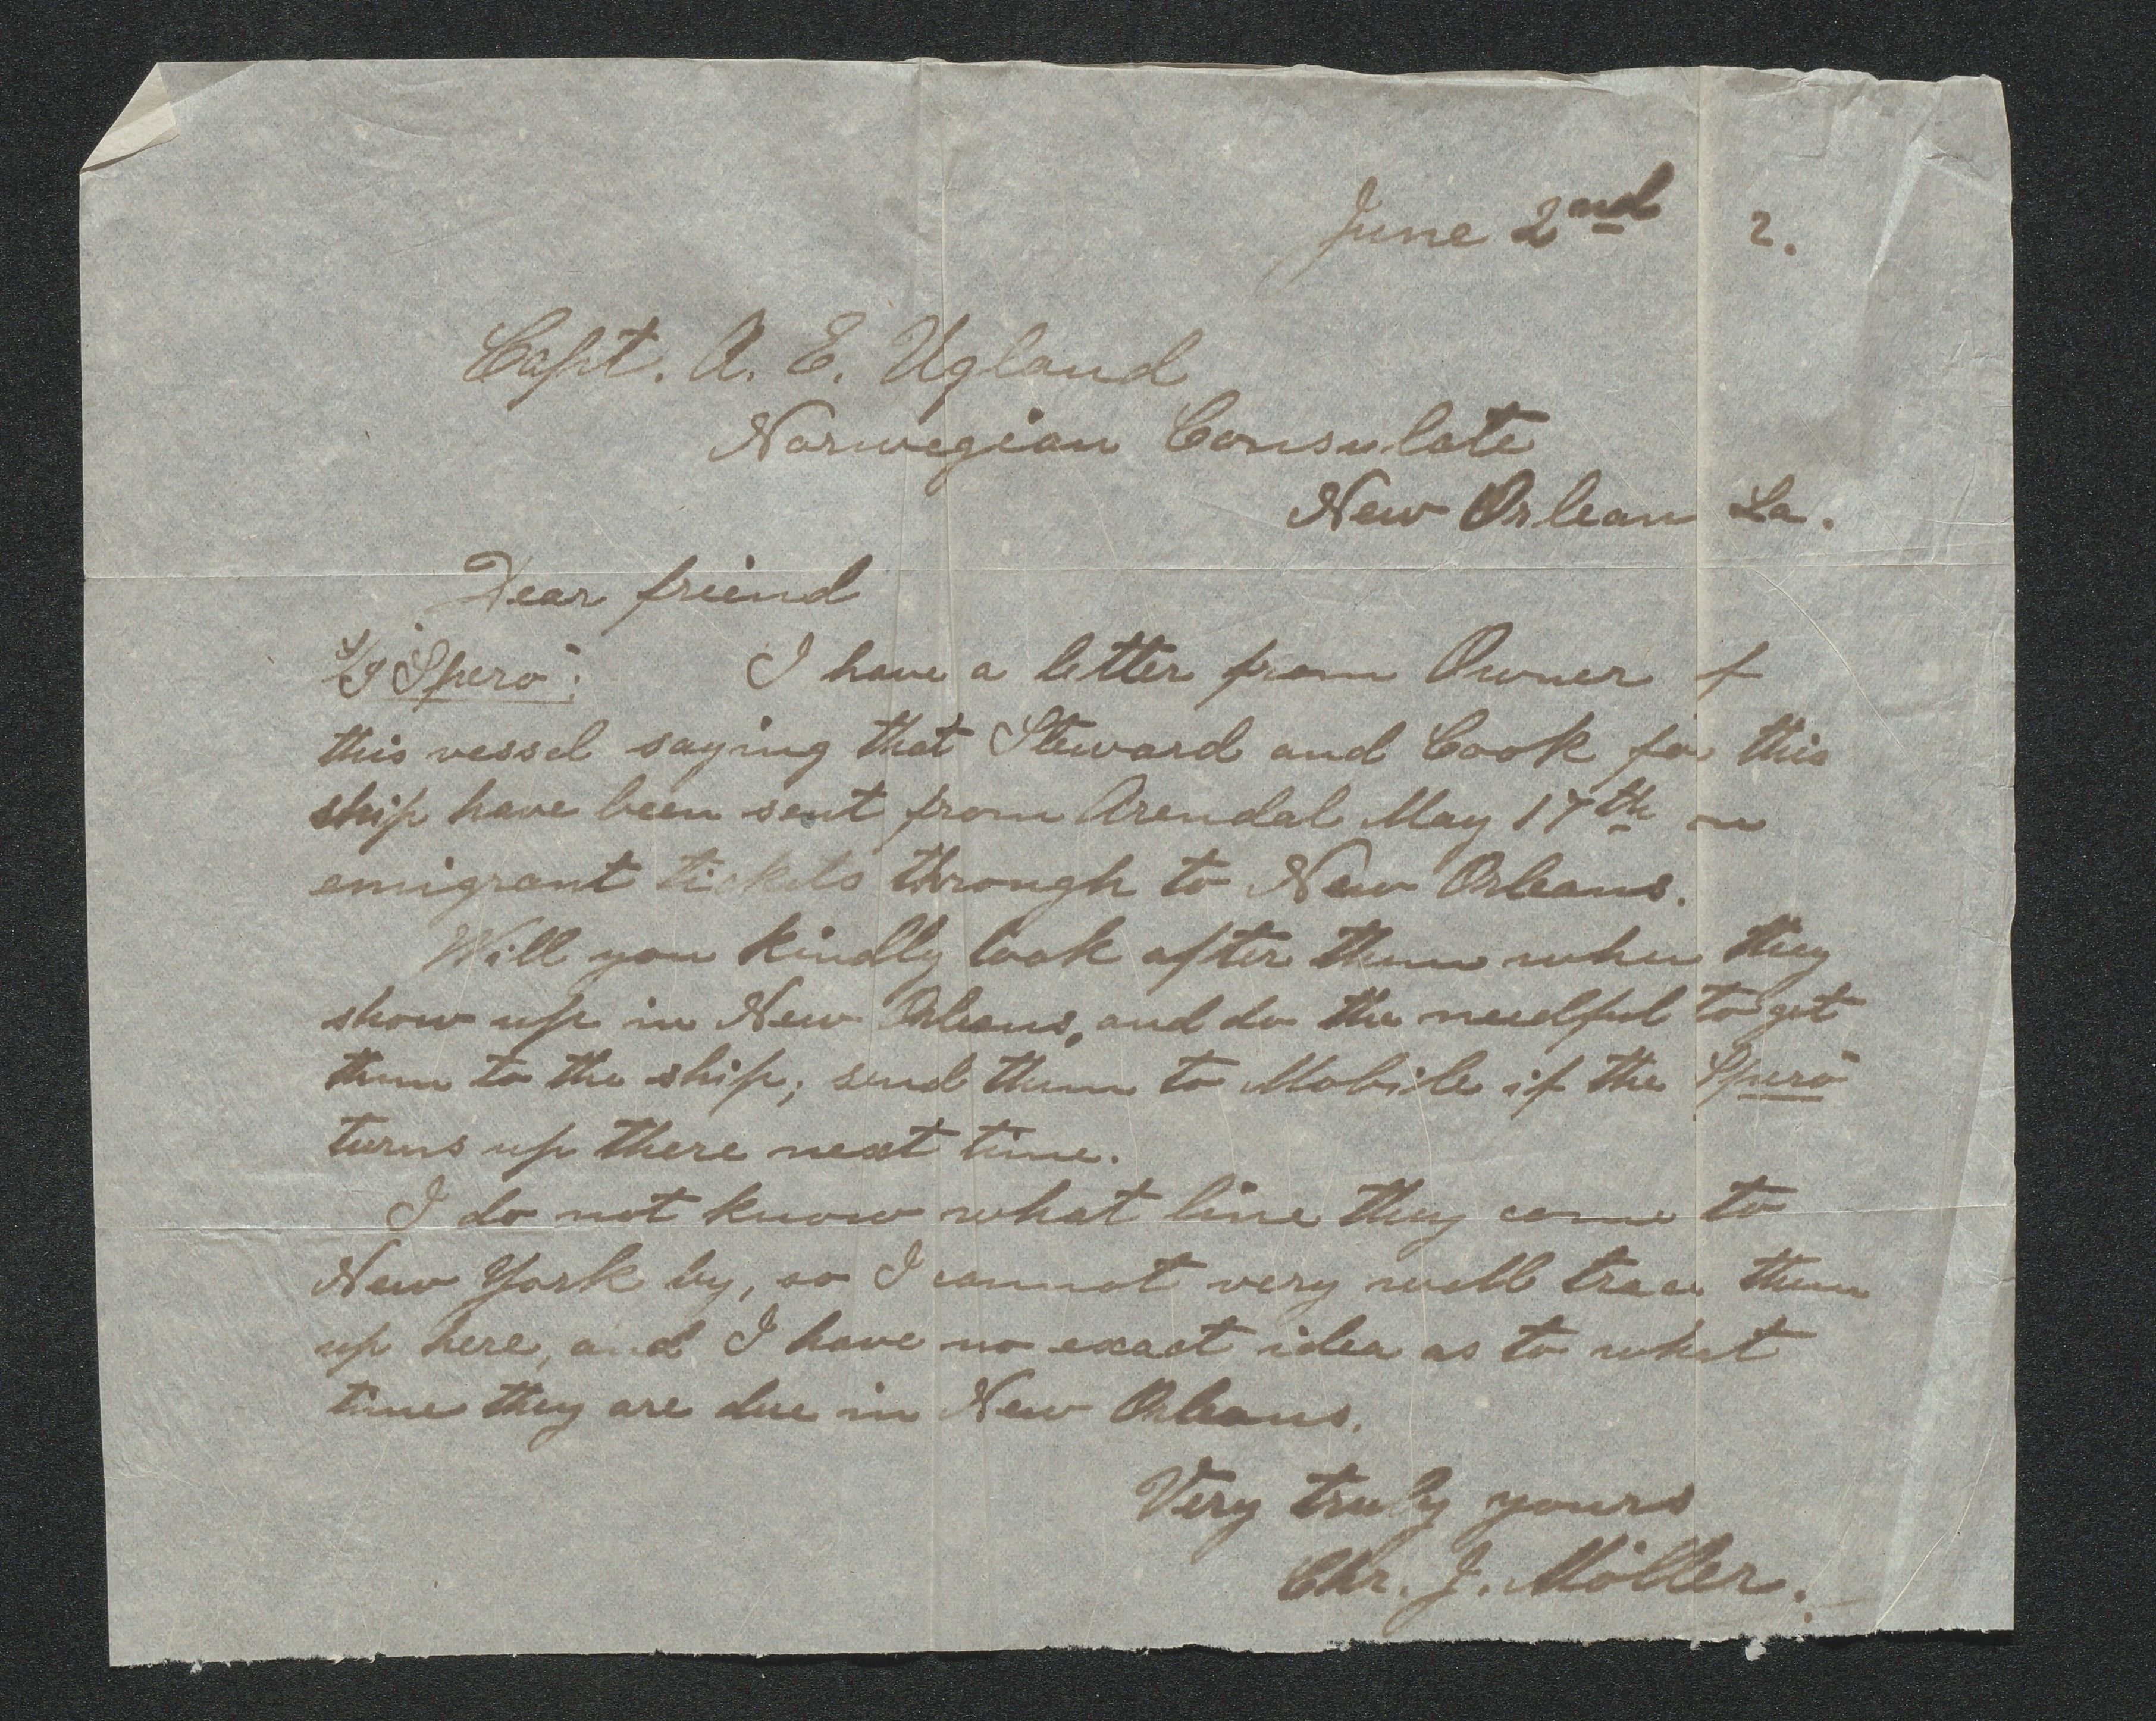 June 2nd 2.
Capt. A. E. Ugland
Norwegian Consulate
New Orlean La.
Dear friend
S/S "Spero": I have a letter from Owner of
this vessel saying that Steward and Cook for this
ship have been sent from Arendal May 17th on
emigrant tickets through to New Orleans.
Will you kindly look after them when they
show up in New Orleans, and do the needful to get
them to the ship; send them to Mobile if the Spero"
turns up there next time.
I do not know what line they come to
New York by, so I cannot very well trace them
up here, and I have no exact idea as to what
time they are due in New Orleans.
Very truly yours
Chr. J. Möller.